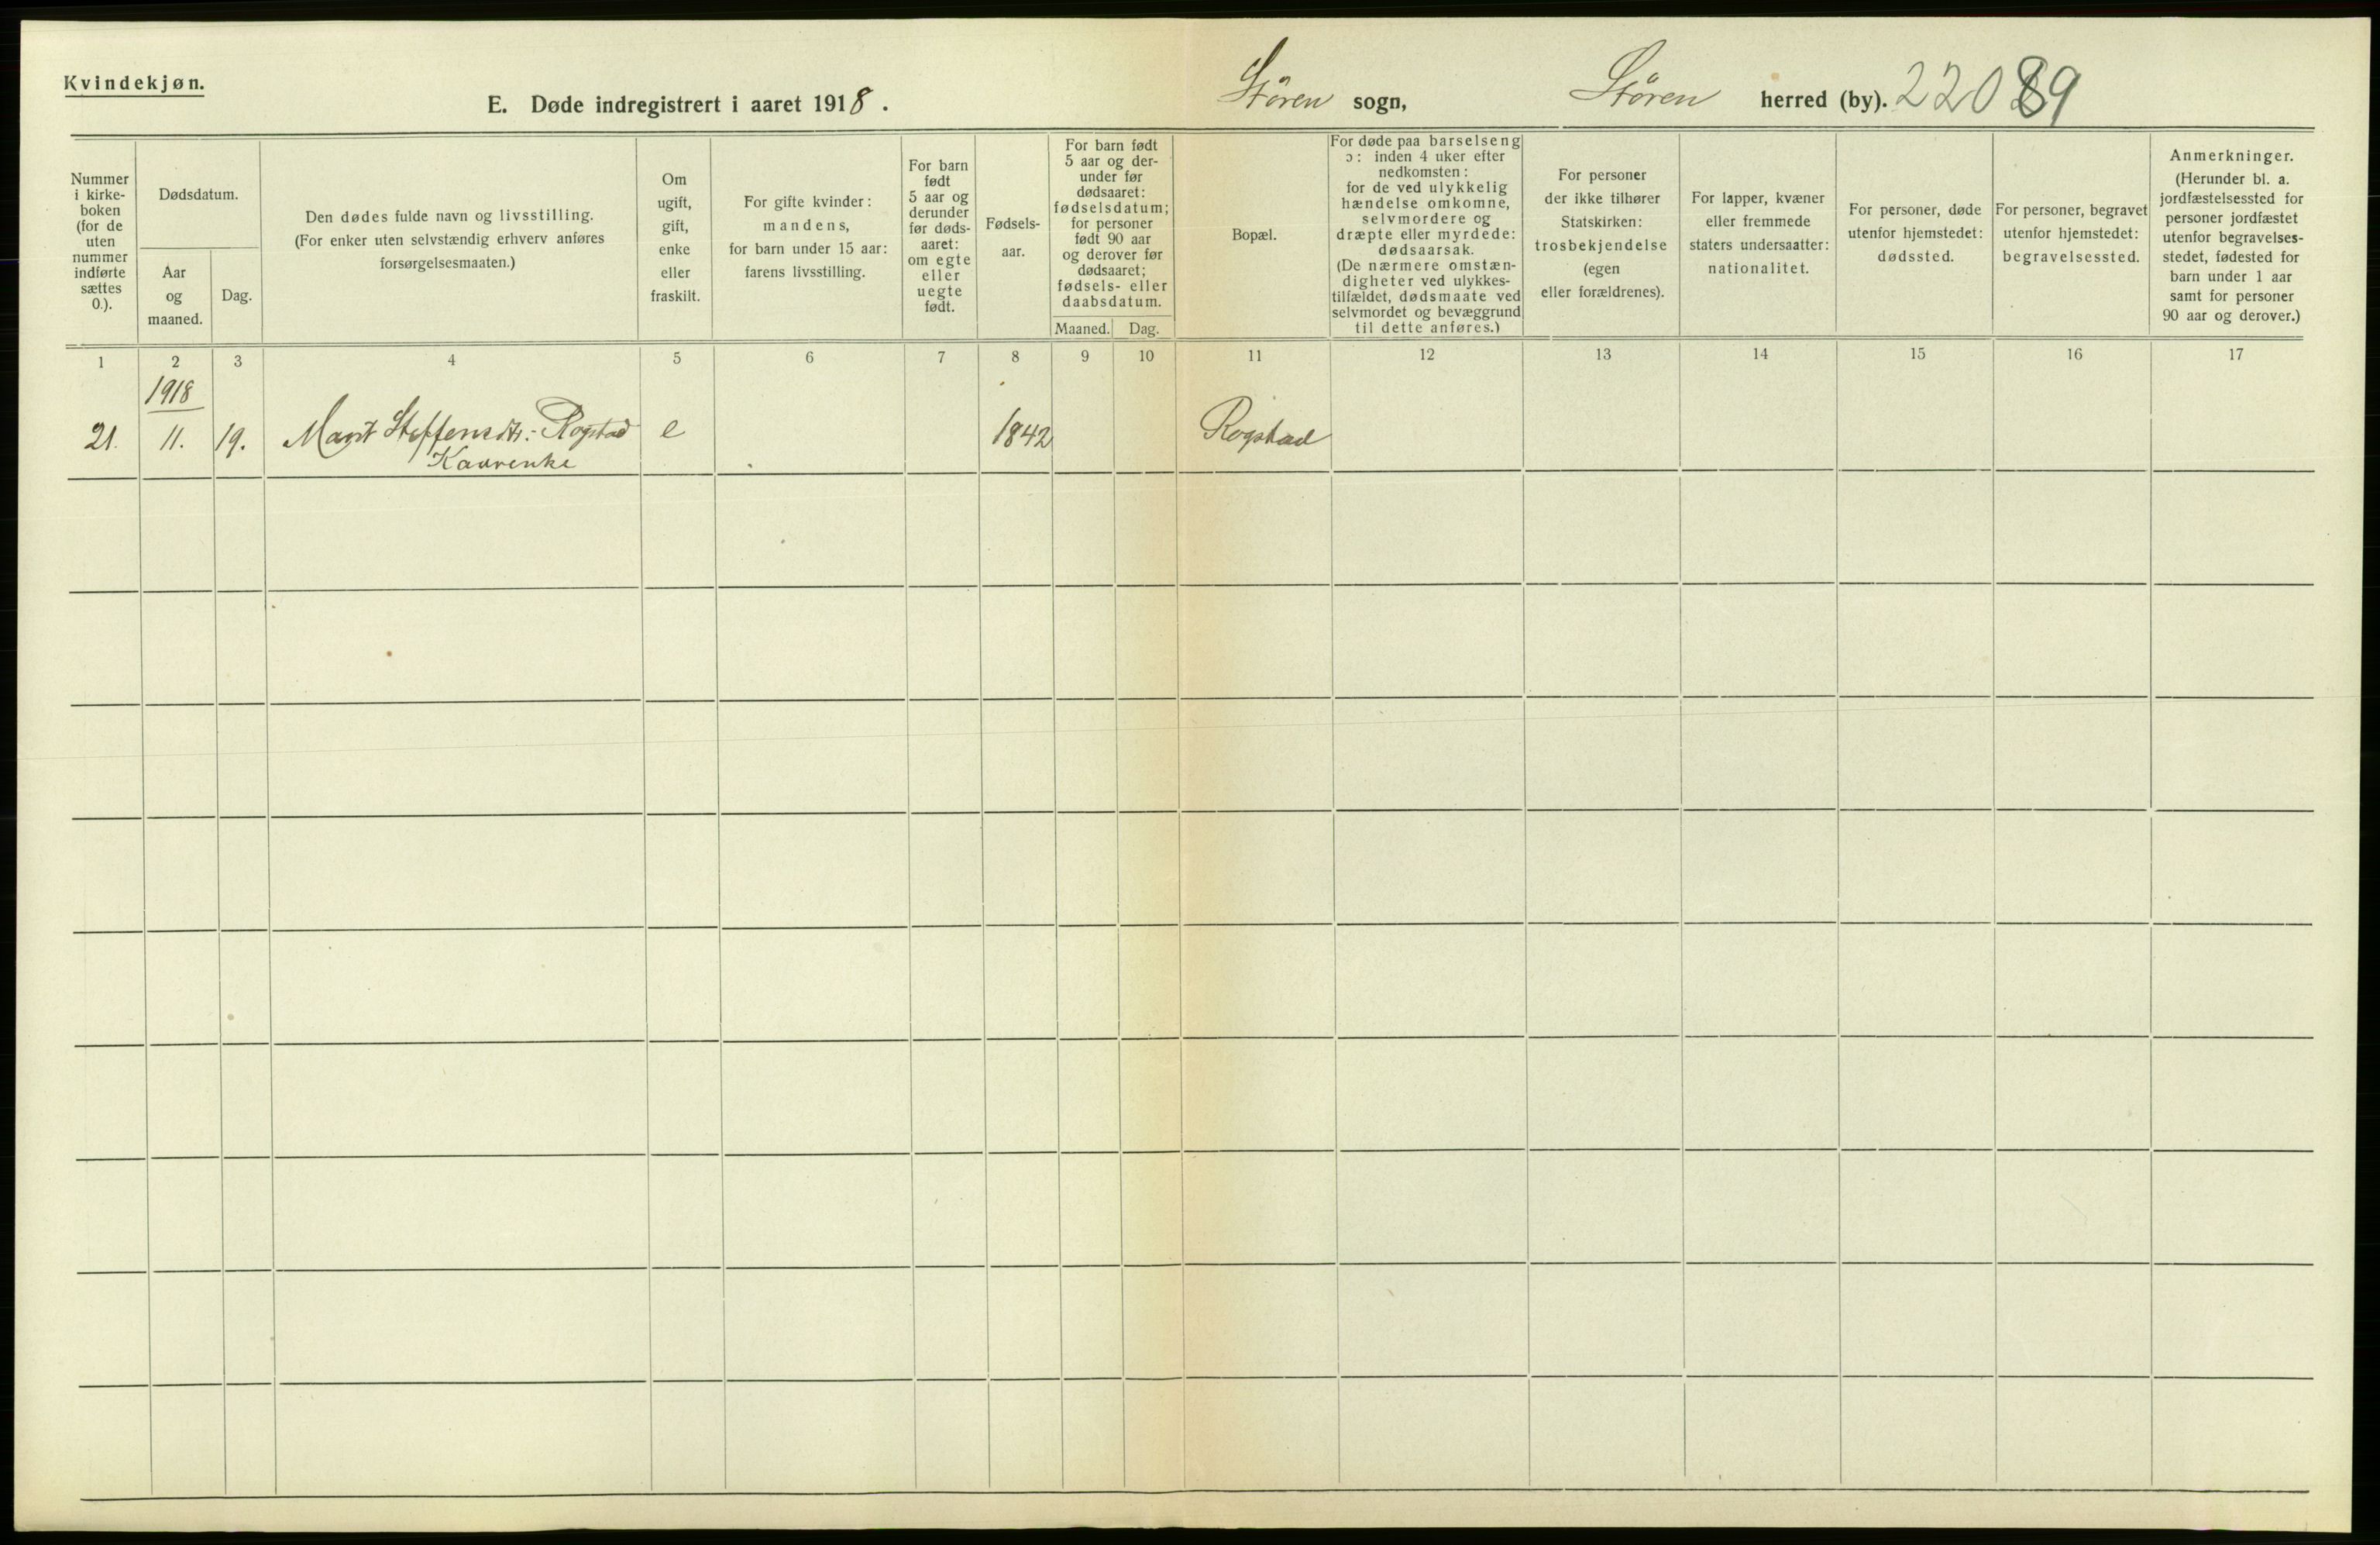 Kvindekjøn.
E. Døde indregistrert i aaret 1918.
Støren sogn, Støren herred (by). 22089
Nummer
i kirke-
boken
(for de
uten
nummer
indførte
sættes
0.).
Dødsdatum.
Aar
og
maaned.
Dag.
Den dødes fulde navn og livsstilling.
(For enker uten selvstændig erhverv anføres
forsørgelsesmaaten.)
Om
ugift,
gift,
enke
eller
fraskilt.
For gifte kvinder:
mandens,
for barn under 15 aar:
farens livsstilling.
For barn
født
5 aar og
derunder
før døds-
aaret:
om egte
eller
uegte
født.
Fødsels-
aar.
For barn født
5 aar og der-
under før
dødsaaret:
fødselsdatum;
for personer
født 90 aar
og derover før
dødsaaret;
fødsels- eller
daabsdatum.
Maaned.
Dag.
Bopæl.
For døde paa barselseng
ɔ: inden 4 uker efter
nedkomsten:
for de ved ulykkelig
hændelse omkomne,
selvmordere og
dræpte eller myrdede:
dødsaarsak.
(De nærmere omstæn-
digheter ved ulykkes-
tilfældet, dødsmaate ved
selvmordet og bevæggrund
til dette anføres.)
For personer
der ikke tilhører
Statskirken:
trosbekjendelse
(egen
eller forældrenes).
For lapper, kvæner
eller fremmede
staters undersaatter:
nationalitet.
For personer, døde
utenfor hjemstedet:
dødssted.
For personer, begravet
utenfor hjemstedet:
begravelsessted.
Anmerkninger.
(Herunder bl. a.
jordfæstelsessted for
personer jordfæstet
utenfor begravelses-
stedet, fødested for
barn under 1 aar
samt for personer
90 aar og derover.)
1 2 3 4 5 6 7 8 9 10 11 12 13 14 15 16 17
1918
21. 11. 19. Marit Steffensdtr.- Rogstad e 1842 Rogstad
Kaarenke